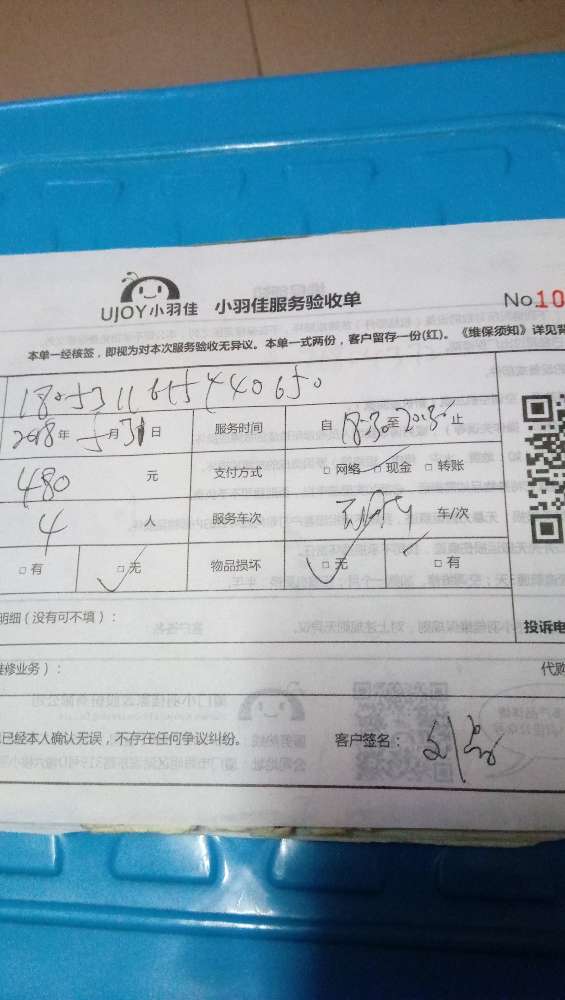 UJOY小羽佳 小羽佳服务验收单 No.10
本单一经核签，即视为对本次服务验收无异议。本单一式两份，客户留存一份(红)。《维保须知》详见背
18053116554440650
2018年 5月31日 服务时间 自 18:30 至 20:30 止
480 元 支付方式 □网络 □现金 □转账
4 人 服务车次 车/次
□有 □无 物品损坏 □无 □有
明细（没有可不填）： 投诉电
修业务）： 代购
已经本人确认无误，不存在任何争议纠纷。 客户签名：